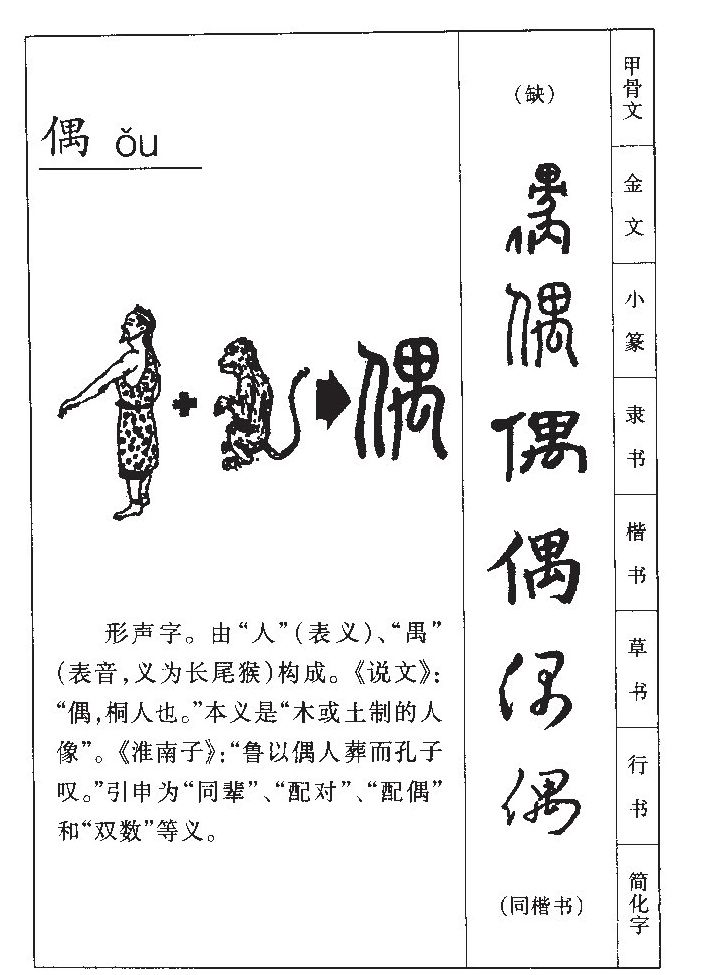 偶 ǒu
形声字。由“人”(表义)、“禺”
(表音,义为长尾猴)构成。《说文》:
“偶,桐人也。”本义是“木或土制的人
像”。《淮南子》:“鲁以偶人葬而孔子
叹。”引申为“同辈”、“配对”、“配偶”
和“双数”等义。
偶
(缺)
偶
偶
偶
偶
偶
(同楷书)
甲骨文
金文
小篆
隶书
楷书
草书
行书
简化字